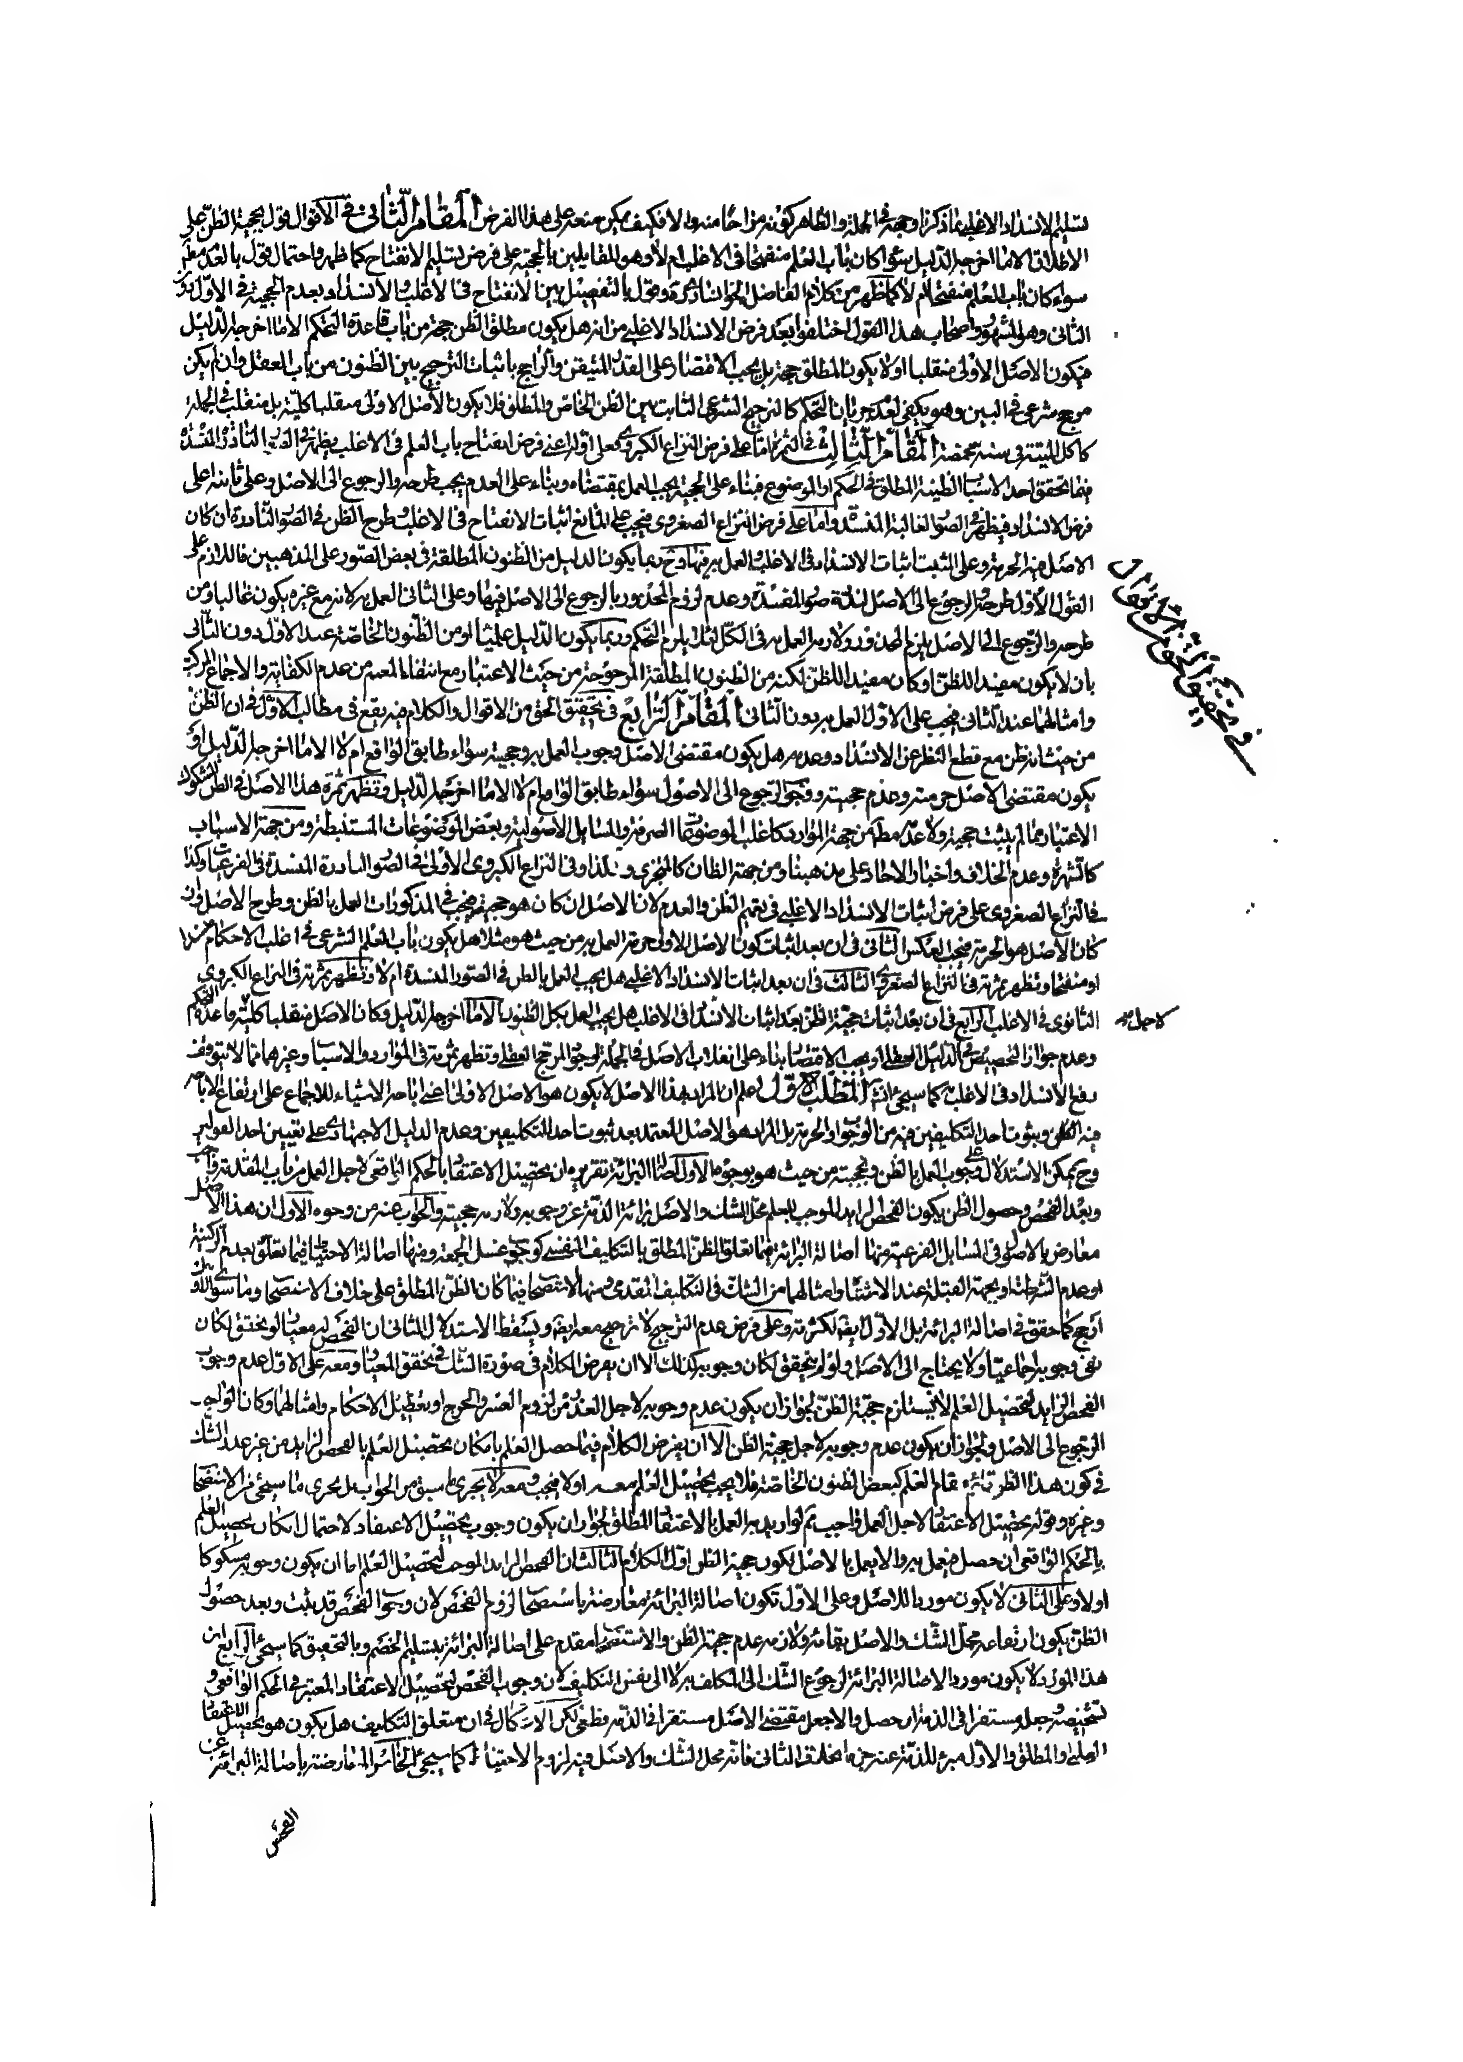 تسليم الانسداد الاغلبى ما ذكرنا وجهه فى الجملة والظاهر كونه مزاحما منه والا فكيف يمكن منعه على هذا الفرض المقام الثانى فى الاقوال قول بحجية الظن على
الاطلاق الا ما اخرجه الدليل سواء كان باب العلم منفتحا فى الاغلب ام لا وهو للقايلين بالحجية على فرض تسليم الانفتاح كما ظهر واحتمال قول بالعدم مطلقا
سواء كان باب العلم منفتحا ام لا كما ظهر من كلام الفاضل الخوانسارى وقول بالتفصيل بين الانفتاح فى الاغلب والانسداد بعدم الحجية فى الاول دون
الثانى وهو المشهور واصحاب هذا القول اختلفوا بعد فرض الانسداد الاغلبى من انه هل يكون مطلق الظن حجة من باب قاعدة التحكم الا ما اخرجه الدليل
فيكون الاصل الاولى منقلبا او لا يكون المطلق حجة بل يجب الاقتصار على القدر المتيقن والراجح باثبات الترجيح بين الظنون من باب العقل وان لم يكن
مرجح شرعى فى البين وهو يكفى لعدم جريان التحكم كالترجيح الشرعى الثابت بين الظن الخاص والمطلق فلا يكون الاصل الاولى منقلبا كلية بل منقلب فى الجملة
كاكل الميتة فى سنة مخمصة المقام الثالث فى الثمرة اما على فرض النزاع الكبروى فعلى اوله اعنى فرض انفتاح باب العلم فى الاغلب يظهر فى الصور النادرة المنسدة
فيما تحقق احد الاسباب الظنية المطلق فى الحكم او الموضوع فبناء على الحجية يجب العمل بمقتضاه وبناء على العدم يجب طرحه والرجوع الى الاصل وعلى ثانيه على
فرض الانسداد فيظهر فى الصور الغالبة المنسدة واما على فرض النزاع الصغروى فيجب على المانع اثبات الانفتاح فى الاغلب وطرح الظن فى الصور النادرة ان كان
الاصل فيه الحرمة وعلى المثبت اثبات الانسداد فى الاغلب والعمل به فيها وح ربما يكون الدليل من الظنون المطلقة فى بعض الصور على المذهبين فاللازم على
القول الاول طرحه والرجوع الى الاصل لندرة صور المنسدة وعدم لزوم المحذور بالرجوع الى الاصل فيها وعلى الثانى العمل به لانه مع غيره يكون غالبا ومن
طرحه والرجوع الى الاصل يلزم المحذور ولازمه العمل به فى الكل لئلا يلزم التحكم وربما يكون الدليل علميا او من الظنون الخاصة عند الاول دون الثانى
بان لا يكون مفيدا للظن او كان مفيدا للظن لكنه من الظنون المطلقة المرجوحة من حيث الاعتبار مع انتفاء المعمم من عدم الكفاية والاجماع المركب
وامثالهما عند الثانى فيجب على الاول العمل به دون الثانى المقام الرابع فى تحقيق الحق من الاقوال والكلام فيه يقع فى مطالب الاول فى ان الظن
من حيث انه ظن مع قطع النظر عن الانسداد وعدمه هل يكون مقتضى الاصل وجوب العمل به وحجيته سواء طابق الواقع ام لا الا ما اخرجه الدليل او
يكون مقتضى الاصل حرمته وعدم حجيته ووجوب الرجوع الى الاصول سواء طابق الواقع ام لا الا ما اخرجه الدليل وتظهر ثمرة هذا الاصل فى الظن المشكوك
الاعتبار مما لم يثبت حجيته ولا عدمه مط من جهة الموارد كاغلب الموضوعات الصرفة والمسايل الاصولية وبعض الموضوعات المستنبطة ومن جهة الاسباب
كالشهرة وعدم الخلاف واخبار الاحاد على مذهبنا ومن جهة الظان كالمتجزى ولذا وفى النزاع الكبروى الاولى فى الصور النادرة المنسدة فى الفرعيات وكذا
فى النزاع الصغروى على فرض اثبات الانسداد الاغلبى فى تعميم الظن والعدم لان الاصل ان كان هو حجيته فيجب فى المذكورات العمل بالظن وطرح الاصل وان
كان الاصل هو الحرمة فيجب العكس الثانى فى ان بعد اثبات كون الاصل الاولى حرمة العمل به من حيث هو مثلا هل يكون باب العلم الشرعى فى اغلب الاحكام منسدا
او منفتحا وتظهر ثمرته فى النزاع الصغروى الثالث فى ان بعد اثبات الانسداد الاغلبى هل يجب العمل بالظن فى الصور المنسدة ام لا وتظهر ثمرته فى النزاع الكبروى
الثانوى فى الاغلب الرابع فى ان بعد اثبات حجية الظن بعد اثبات الانسداد فى الاغلب هل يجب العمل بكل الظنون الا ما اخرجه الدليل وكان الاصل منقلبا كلية لقاعدة التحكم
لاجل
وعدم جواز التخصيص فى الدليل العقلى او يجب الاقتصار بناء على انقلاب الاصل فى الجملة لوجود المرجح العقلى وتظهر ثمرته فى الموارد والاسباب وغيرهما مما لا يتوقف
رفع الانسداد فى الاغلب كما سيجئ المطلب الاول اعلم ان المراد بهذا الاصل لا يكون هو الاصل الاولى اعنى اباحة الاشياء للاجماع على ارتفاع الاباحة
فيه الظن وثبوت احد التكليفين فيه من الوجوب والحرمة بل المراد هو الاصل المعتمد بعد ثبوت احد التكليفين وعدم الدليل الاجتهادى على تعيين احد القولين
وح يمكن الاستدلال على وجوب العمل بالظن وبحجيته من حيث هو بوجوه الاول اصالة البرائة تقريره ان تحصيل الاعتقاد بالحكم الواقعى لاجل العمل من باب المقدمة واجب
وبعد الفحص وحصول الظن يكون الفحص الزايد الموجب للعلم محل الشك والاصل برائة الذمة عن وجوبه ولازمه حجيته والجواب عنه من وجوه الاول ان هذا الاصل
معارض بالاصول فى المسايل الفرعية منها اصالة البرائة فيما تعلق الظن المطلق بالتكليف النفسى كوجوب غسل الجمعة ومنها اصالة الاحتياط فيما تعلق بعدم الركنية
او عدم الشرطية او بجهة القبلة عند الاشتباه وامثالهما من الشك فى التكليف المقدمى ومنها الاستصحاب فيما كان الظن المطلق على خلاف الاستصحاب وما سوى ذلك
ارجح كما حقق فى اصالة البرائة بل الاول ايضا لكثرته وعلى فرض عدم الترجيح لا ترجيح معه ايضا ويسقط الاستدلال الثانى ان الفحص له معيار لو تحقق لكان
نفى وجوبه اجماعيا ولا يحتاج الى الاصل ولو لم يتحقق لكان وجوبه كذلك الا ان يفرض الكلام فى صورة الشك فى تحقق المعيار ومعه على الاول عدم وجوب
الفحص الزايد لتحصيل العلم لا يستلزم حجية الظن لجواز ان يكون عدم وجوبه لاجل العذر من لزوم العسر والحرج او تعطيل الاحكام وامثالهما وكان الواجب
الرجوع الى الاصل ولجواز ان يكون عدم وجوبه لاجل حجية الظن الا ان يفرض الكلام فيما حصل العلم بامكان تحصيل العلم بالفحص الزايد من غير عذر الشك
فى كون هذا الظن قائم مقام العلم كبعض الظنون الخاصة فلا يجب تحصيل العلم معه او لا فيجب ومعه لا يجرى ما سبق من الجواب بل يجرى ما سيجئ من الاستصحاب
وغيره وقوله تحصيل الاعتقاد لاجل العمل واجب ثم لو اريد به العمل بالاعتقاد المطلق لجواز ان يكون وجوب تحصيل الاعتقاد لاحتمال امكان تحصيل العلم
بالحكم الواقعى ان حصل فيعمل به والا يعمل بالاصل لكون حجية الظن اول الكلام الثالث ان الفحص الزايد الموجب لتحصيل العلم اما ان يكون وجوبه مشكوكا
او لا وعلى الثانى لا يكون موردا للاصل وعلى الاول تكون اصالة البرائة معارضة باستصحاب لزوم الفحص لان وجوب الفحص قد ثبت وبعد حصول
الظن يكون ارتفاعه محل الشك والاصل بقائه ولازمه عدم حجية الظن والاستصحاب مقدم على اصالة البرائة بتسليم الخصم وبالتحقيق كما سيجئ الرابع ان
هذا المورد لا يكون موردا لاصالة البرائة لرجوع الشك الى المكلف به لا الى نفس التكليف لان وجوب الفحص لتحصيل الاعتقاد المعتبر فى الحكم الواقعى و
تشخيصه وجعله مستقرا فى الذمة ان حصل والا جعل مقتضى الاصل مستقرا فى الذمة قطعى لكن الاشكال فى ان متعلق التكليف هل يكون هو تحصيل الاعتقاد
العلمى او المطلق والاول مبرئ للذمة عنه جزما بخلاف الثانى فانه محل الشك والاصل فيه لزوم الاحتياط كما سيجئ الخامس المعارضة باصالة البرائة عن
الفحص
فى تحقيق الحق من الاقوال